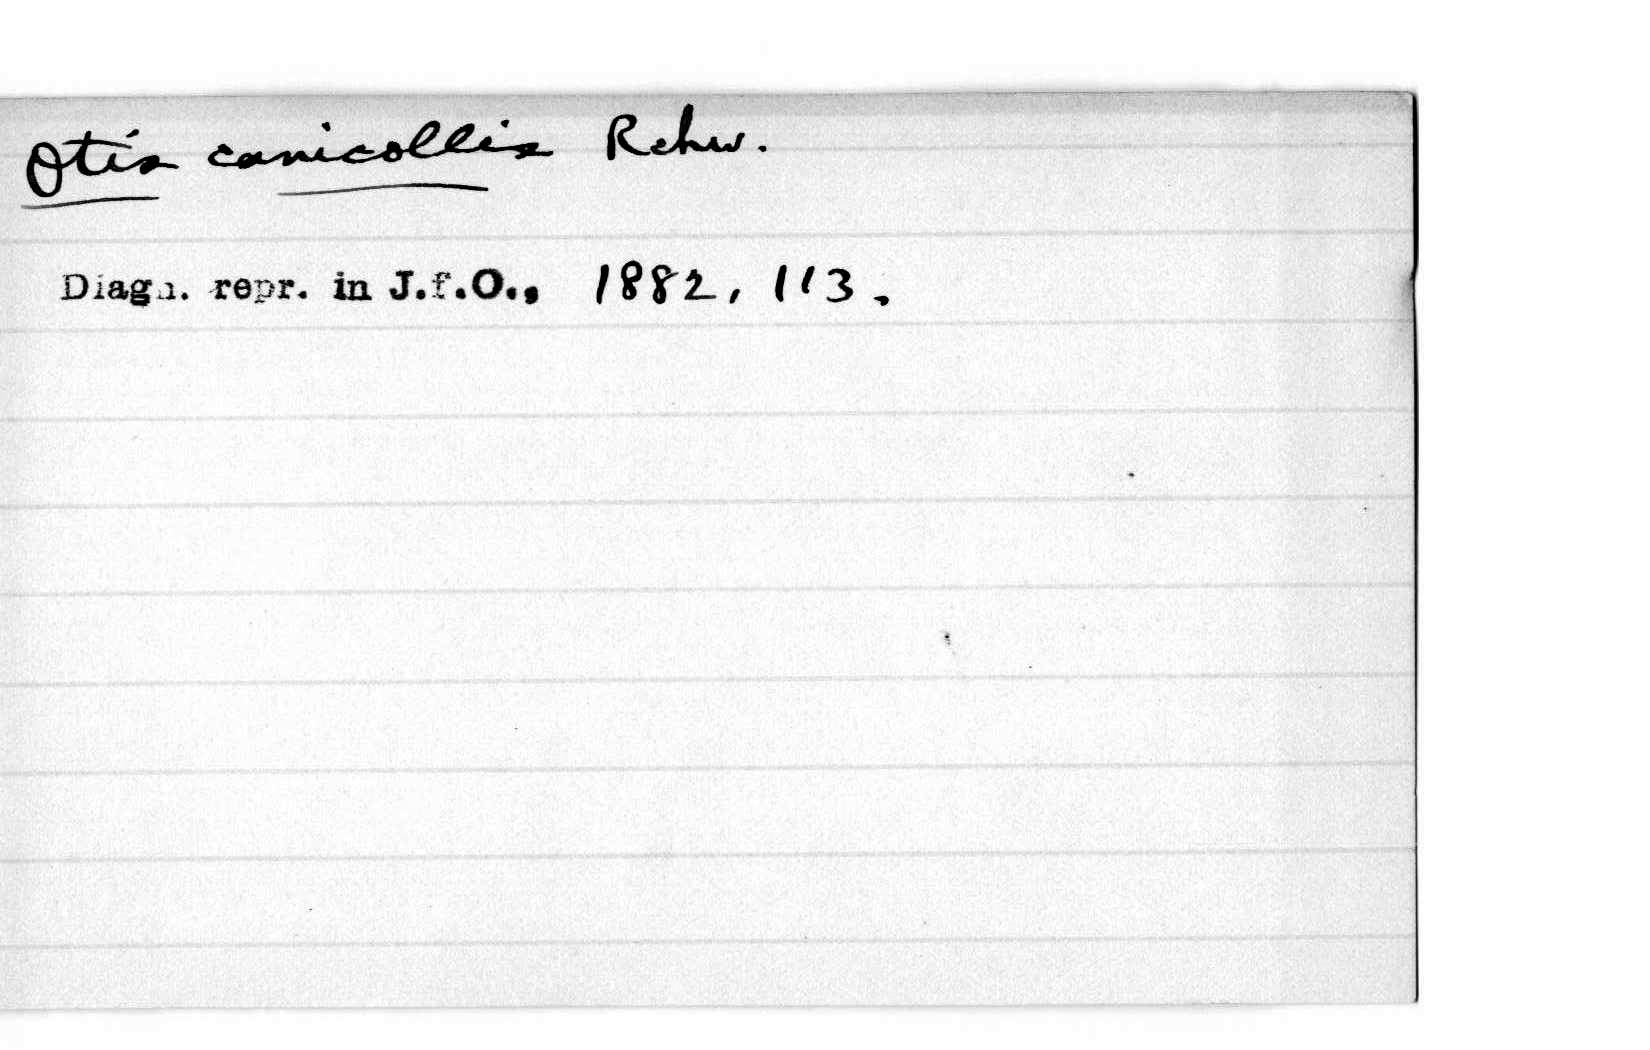 Otis canicollis Rchw.
Diagn. repr. in J.f.O., 1882, 113.